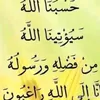 حَسْبُنَا اللَّهُ
سَيُؤْتِينَا اللَّهُ
مِن فَضْلِهِ وَرَسُولُهُ
نَّا إِلَى اللَّهِ رَاغِبُونَ